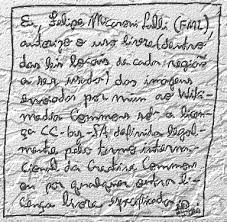 Eu Felipe Micaroni Lalli (FML),
autorizo o uso livre (dentro
das leis locais de cada região
a ser usado) das imagens
enviadas por mim ao Wiki-
media Commons sob a licença
CC-by-SA definida legal-
mente pelo termo interna-
cional da Creative Commons
ou por qualquer outra li-
cença livre especificada